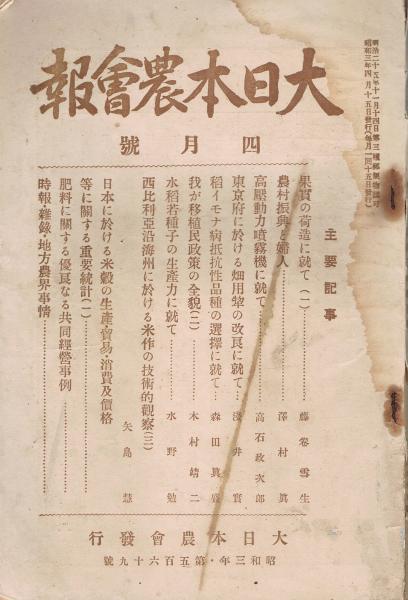 明治二十五年十一月十四日第三種郵便物認可
昭和三年四月十五日發行(毎月一回十五日發行)
大日本農會報
四月號
主要記事
果實の荷造に就て(一)…………藤卷雪生
農村振興と婦人…………澤村眞
高壓動力噴霧機に就て…………高石政次郎
東京府に於ける畑用犂の改良に就て…淺井實
稻イモチ病抵抗性品種の選擇に就て…森田眞盛
我が移植民政策の全貌(二)…………木村靖二
水稻若種子の生產力に就て…………水野勉
西比利亞沿海州に於ける米作の技術的觀察(三)
矢島慧
日本に於ける米穀の生產・貿易・消費及價格
等に關する重要統計(一)…………
肥料に關する優良なる共同經營事例…………
時報・雜錄・地方農界事情…………
大日本農會發行
昭和三年・第五百六十九號